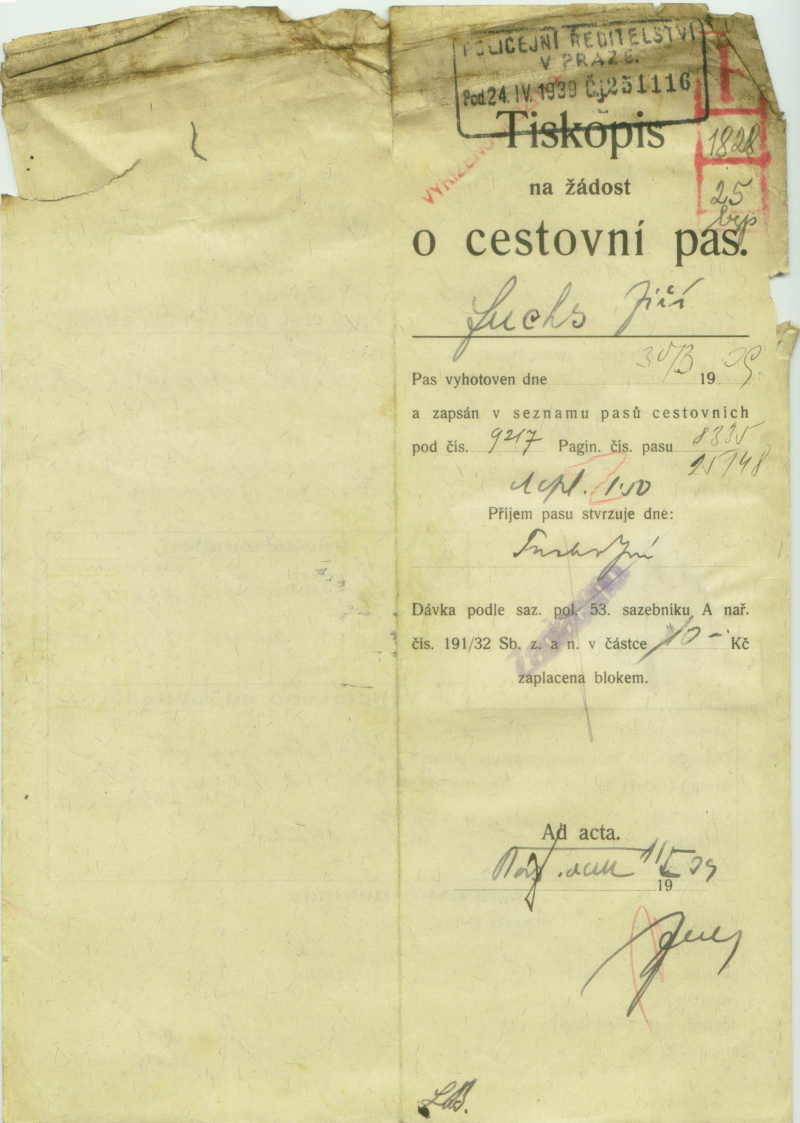 POLICEJNÍ ŘEDITELSTVÍ
V PRAZE.
Pod. 24. IV. 1939 Č.j. 251116
Tiskopis
1828
na žádost
25
o cestovní pas.
VYŘÍZENO
Fuchs Jiří
Pas vyhotoven dne 30/3 19 39.
a zapsán v seznamu pasů cestovních
pod čís. 9217 Pagin. čís. pasu 8335
25148
1·50
Příjem pasu stvrzuje dne:
Fuchs Jiří
Dávka podle saz. pol. 53. sazebníku A nař.
čís. 191/32 Sb. z. a n. v částce 10 – Kč
zaplacena blokem.
Ad acta.
19 39